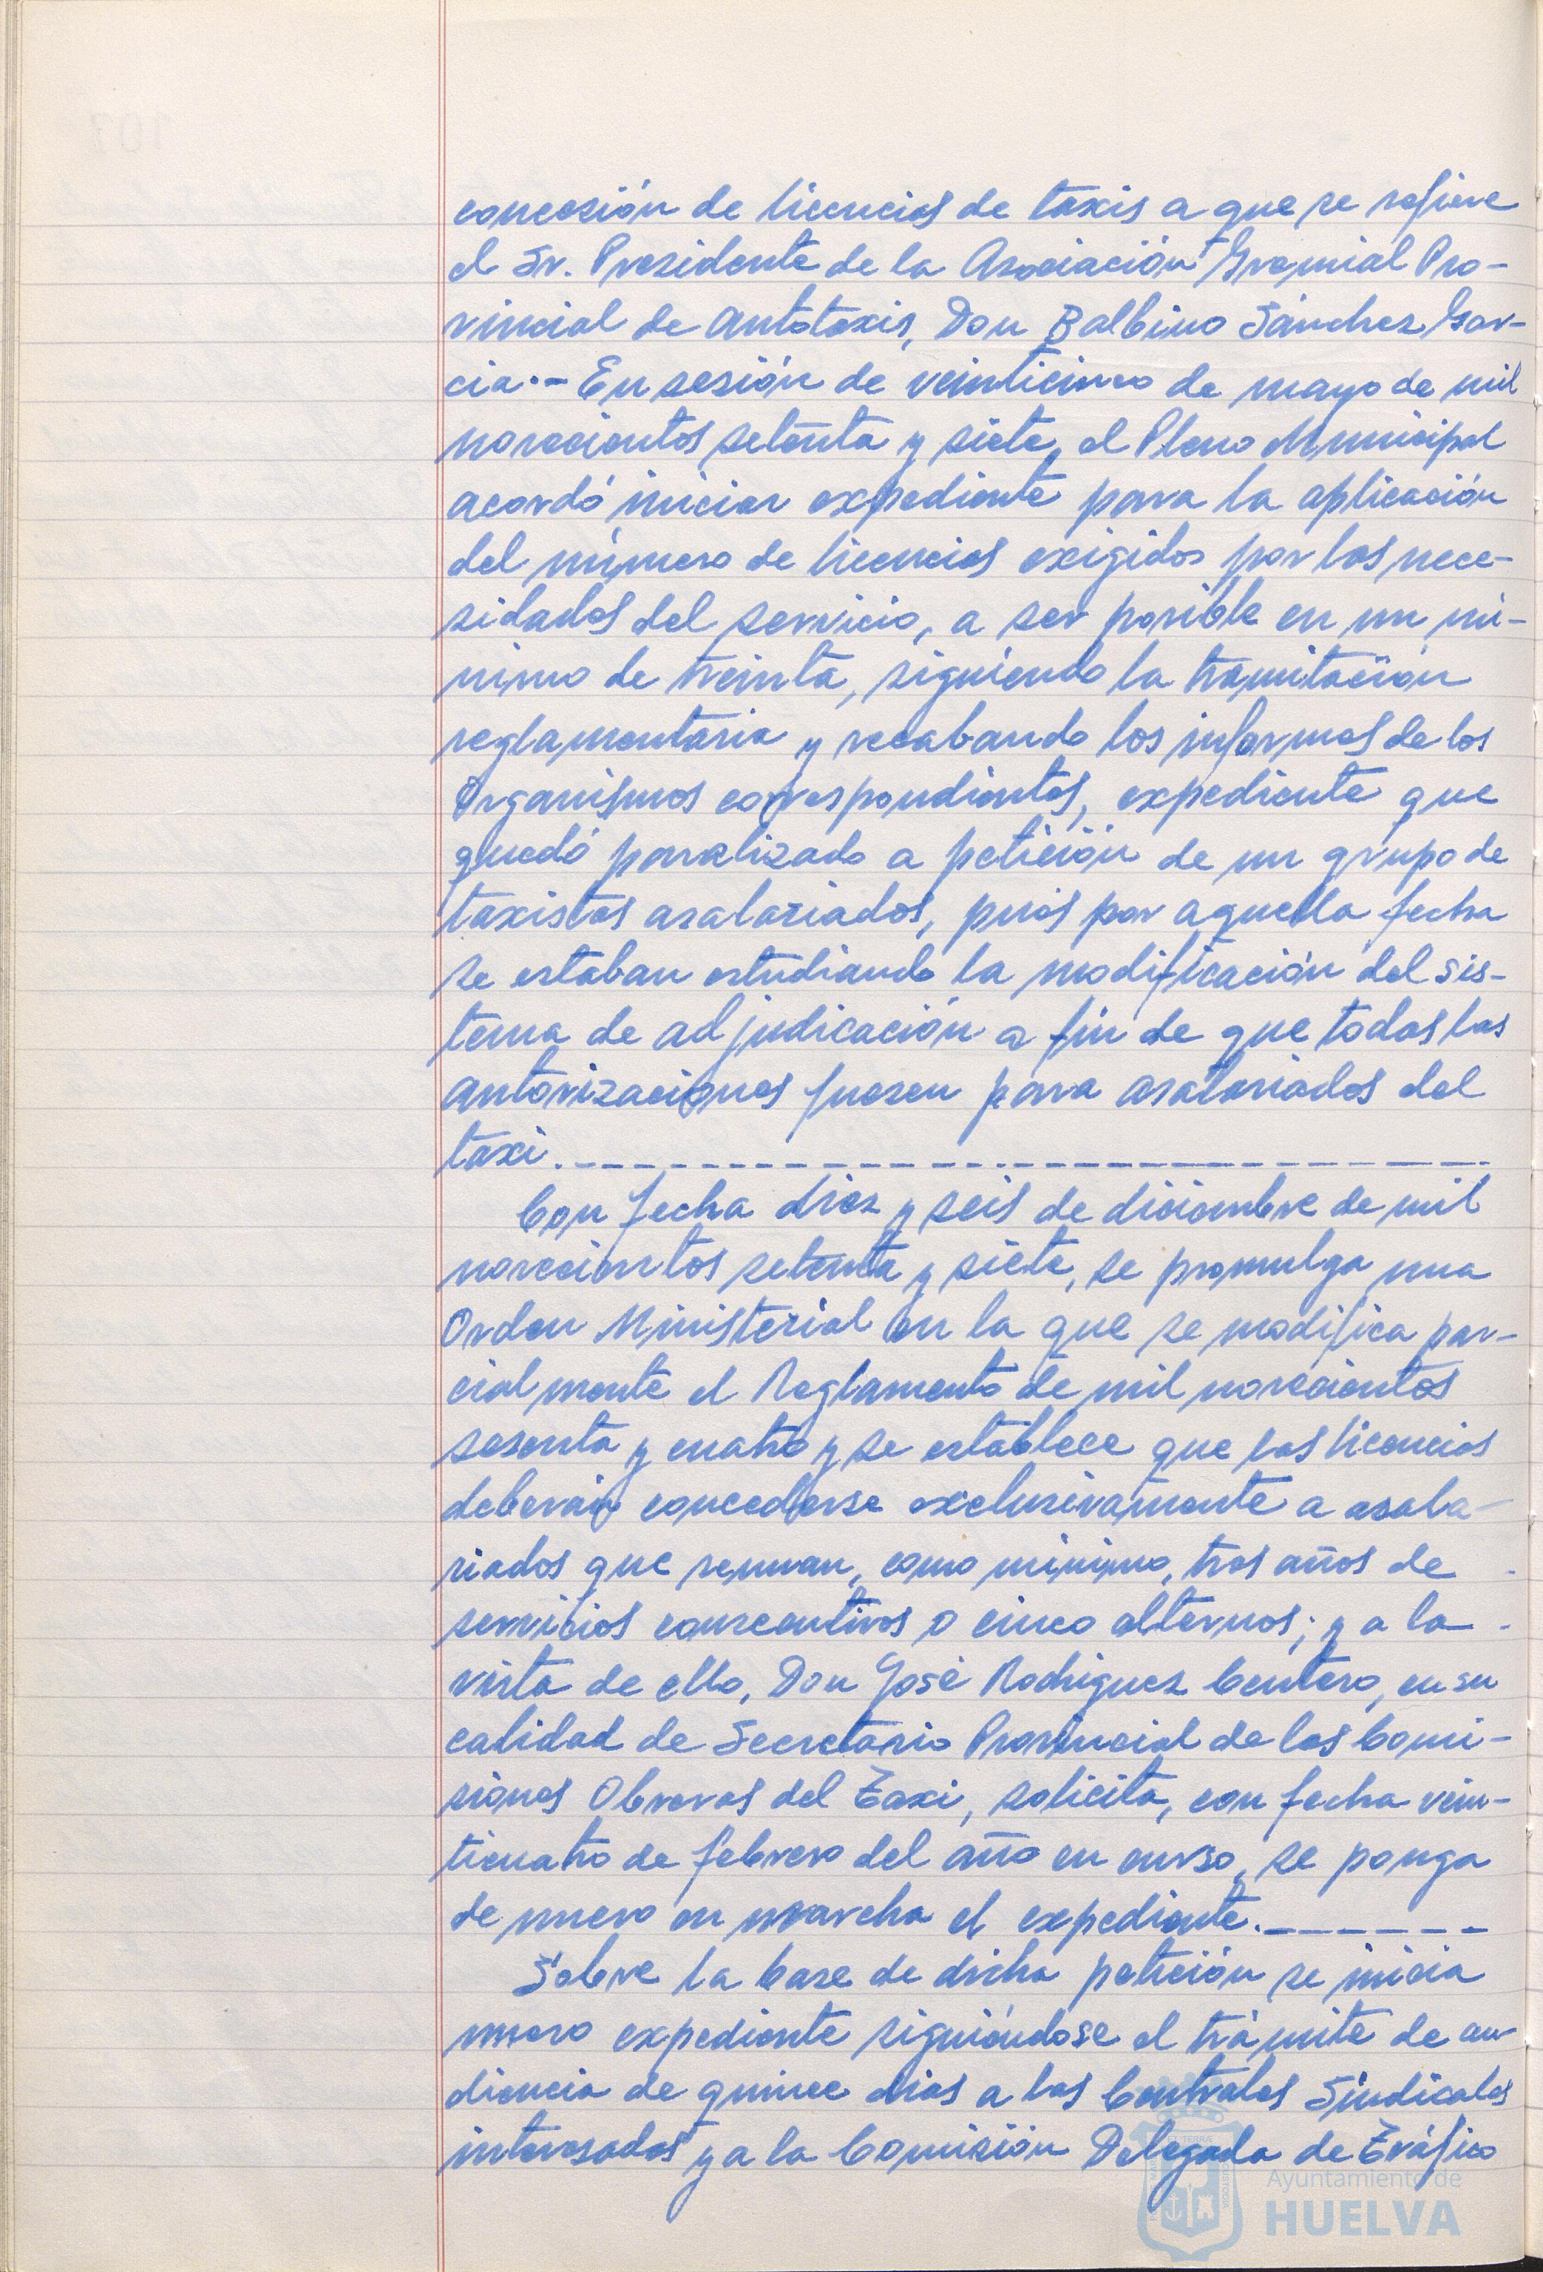 concesión de licencias de taxis a que se refiere
el Sr. Presidente de la Asociación Gremial Pro-
vincial de Autotaxis, Don Balbino Sánchez Gar-
cia.- En sesión de veinticinco de mayo de mil
novecientos setenta y siete, el Pleno Municipal
acordó iniciar expediente para la aplicación
del número de licencias exigidas por las nece-
sidades del servicio, a ser posible en un mí-
nimo de treinta, siguiendo la tramitación
reglamentaria y recabando los informes de los
Organismos correspondientes, expediente que
quedó paralizado a petición de un grupo de
taxistas asalariados, pués por aquella fecha
se estaban estudiando la modificación del sis-
tema de adjudicación a fin de que todas las
autorizaciones fuesen para asalariados del
taxi.
Con fecha diez y seis de diciembre de mil
novecientos setenta y siete, se promulga una
Orden Ministerial en la que se modifica par-
cialmente el Reglamento de mil novecientos
sesenta y cuatro y se establece que las licencias
deberán concederse exclusivamente a asala-
riados que reunan, como mínimo, tres años de
servicios consecutivos o cinco alternos; y a la
vista de ello, Don José Rodriguez Centeno, en su
calidad de Secretario Provincial de las Comi-
siones Obreras del Taxi, solicita, con fecha vein-
ticuatro de febrero del año en curso, se ponga
de nuevo en marcha el expediente.
Sobre la base de dicha petición se inicia
nuevo expediente siguiéndose el trámite de au-
diencia de quince dias a las Centrales Sindicales
interesadas y a la Comisión Delegada de Tráfico
Ayuntamiento de
HUELVA